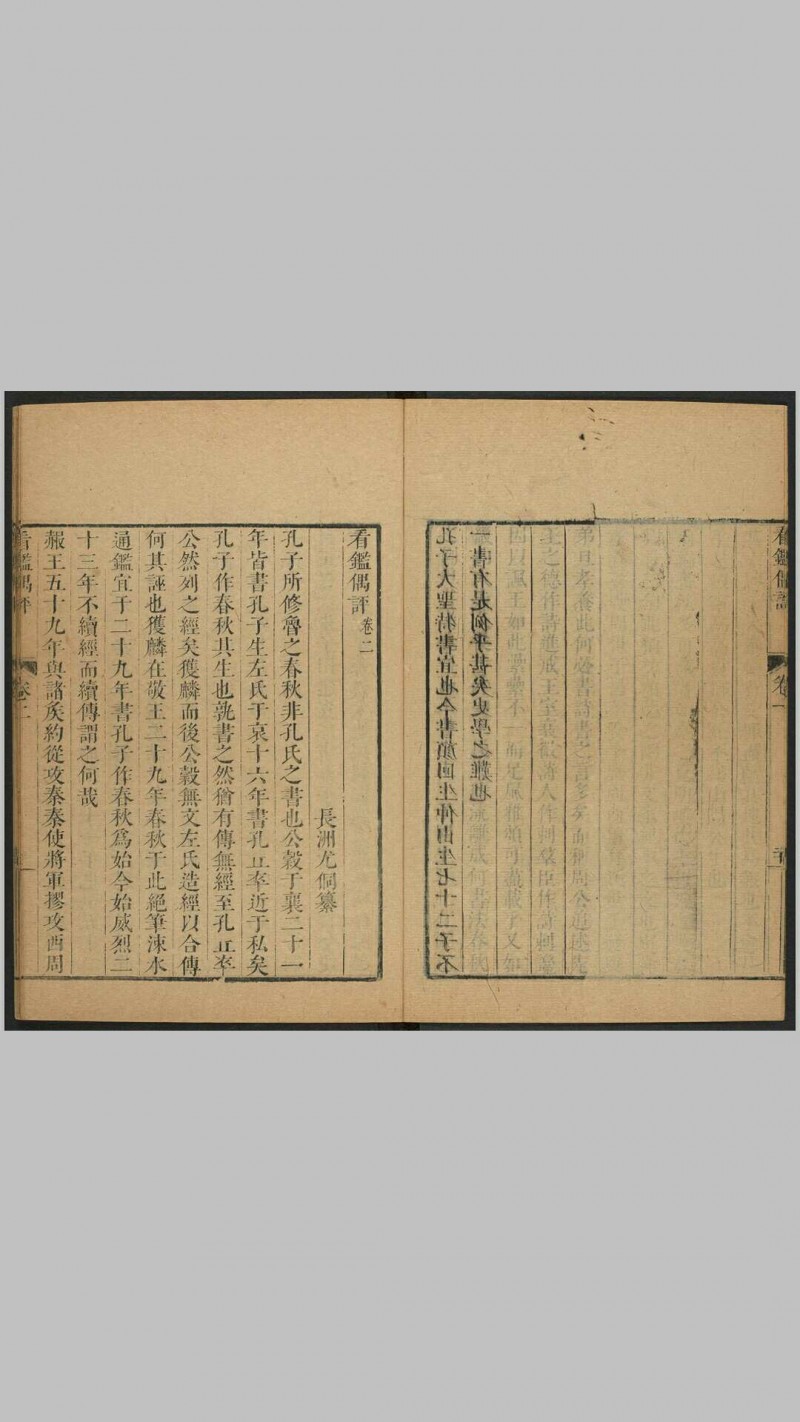 看鑑偶評
卷一
孔子大聖特書宜也今書顏回生仲由生七十二子不
一書有是例乎甚矣史學之難也
看鑑偶評卷二
長洲尤侗纂
孔子所修魯之春秋非孔氏之書也公穀于襄二十一
年皆書孔子生左氏于哀十六年書孔丘卒近于私矣
孔子作春秋其生也孰書之然猶有傳無經至孔丘卒
公然列之經矣獲麟而後公穀無文左氏造經以合傳
何其誣也獲麟在敬王二十九年春秋于此絕筆涑水
通鑑宜于二十九年書孔子作春秋爲始今始威烈二
十三年不續經而續傳謂之何哉
赧王五十九年與諸矦約從攻秦秦使將軍摎攻西周
看鑑偶評
卷二
一